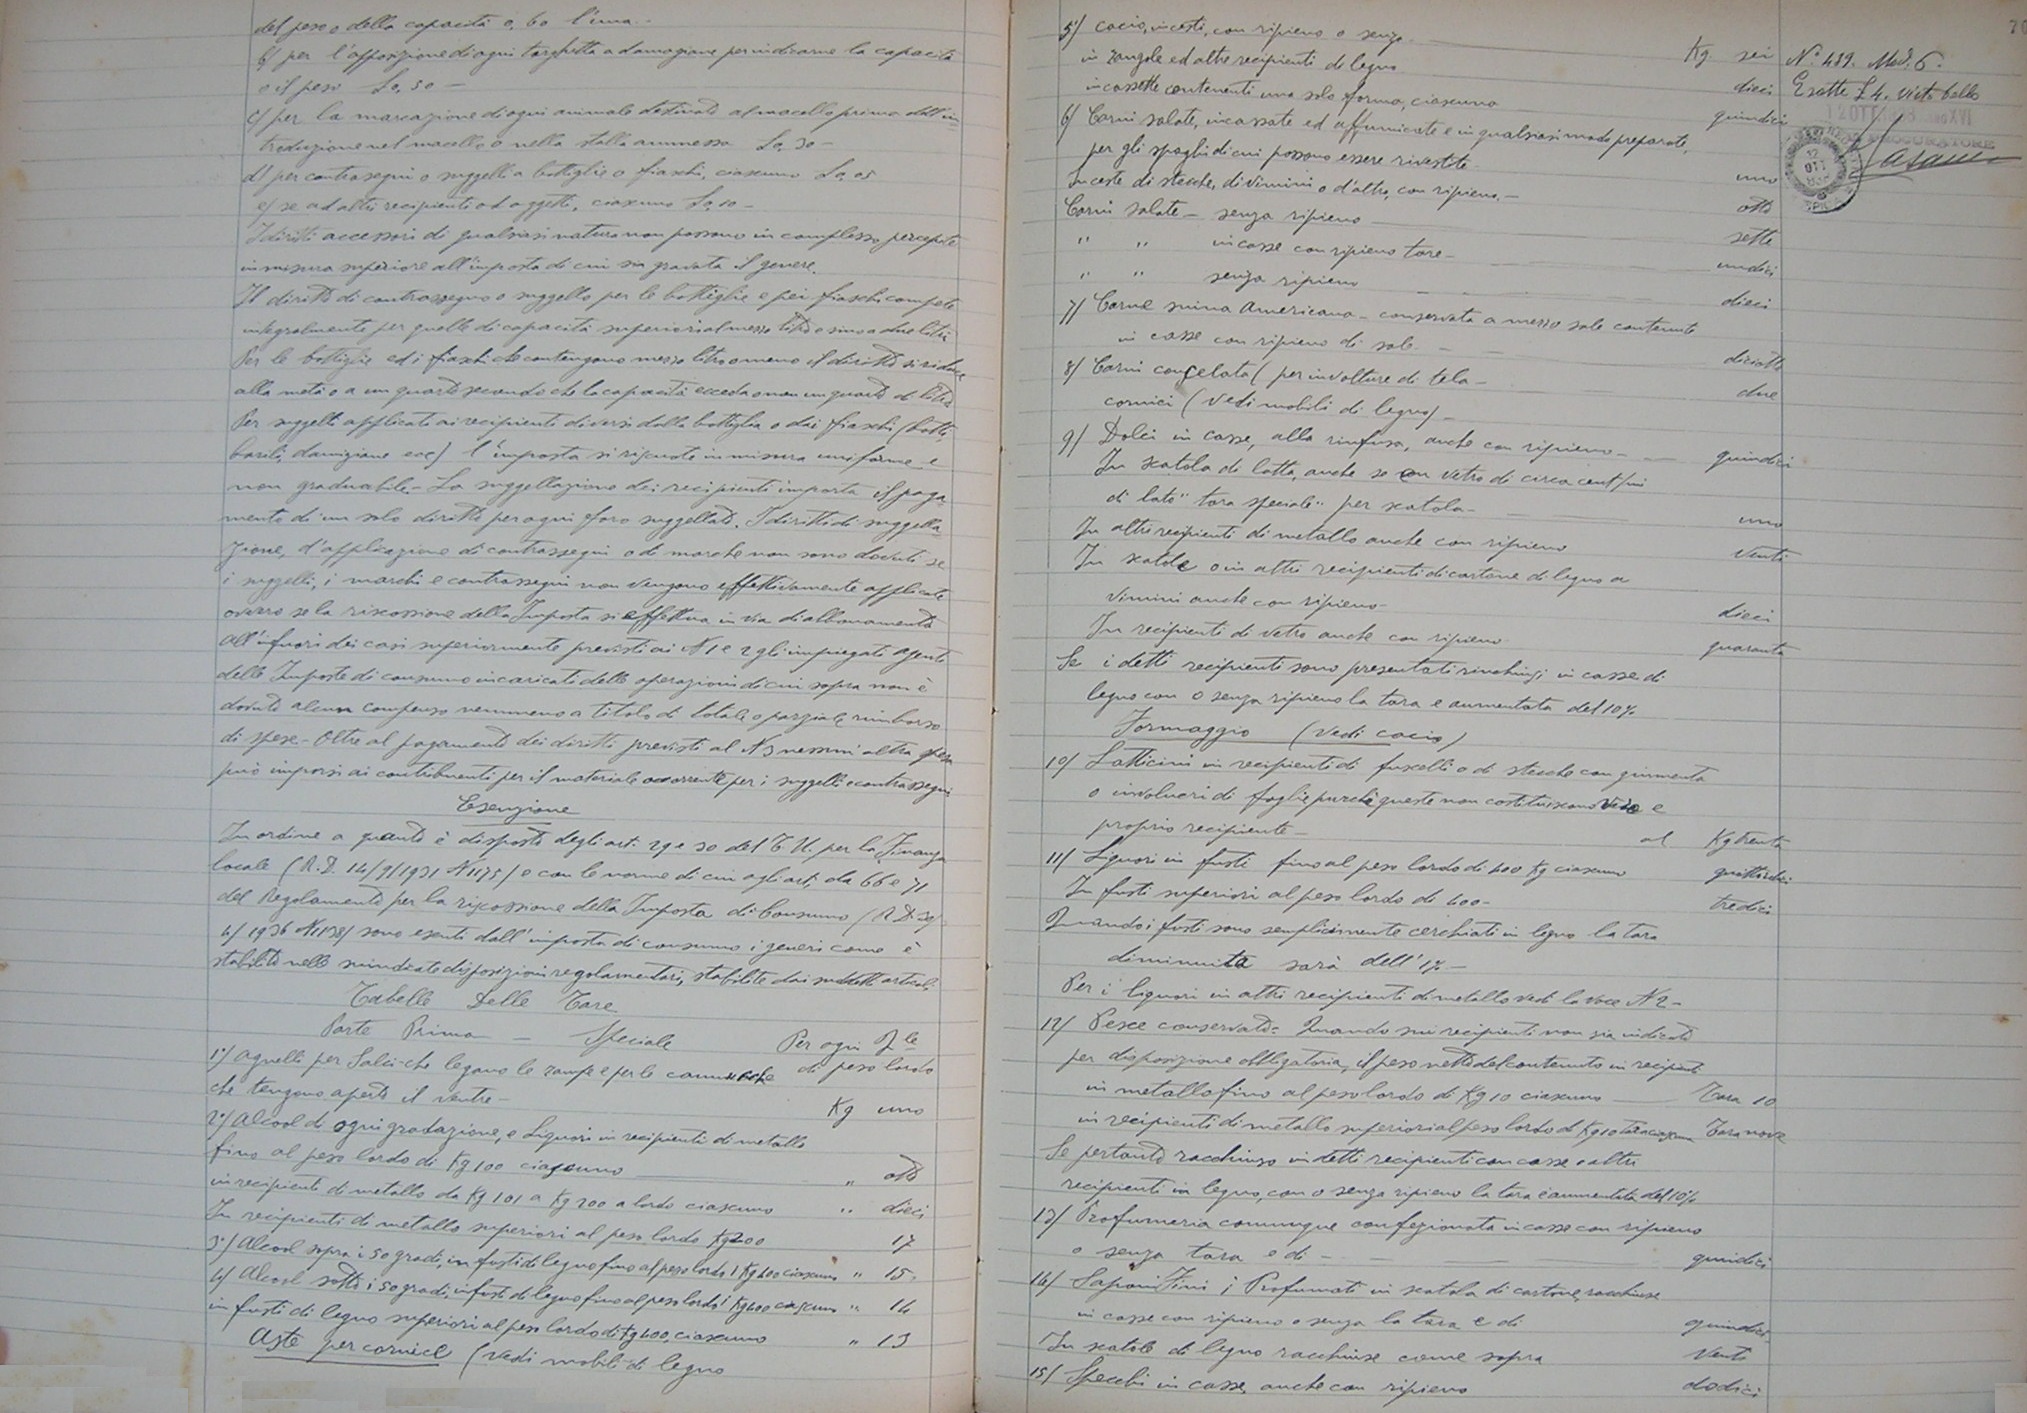 del peso o della capacità 0,60 l'una.-
b/ per l'apposizione di ogni targhetta a damagiane per indicarne la capacità
o il peso L 0,50 -
c/ per la marcazione di ogni animale destinato al macello prima dell'in=
troduzione nel macello o nella stalla annessa L 0,30 -
d/ per contrassegni o suggelli a bottiglie o fiaschi, ciascuno L 0,05
e/ se ad altri recipienti od oggetti, ciascuno L 0,10 -
I diritti accessori di qualsiasi natura non possono in complesso percepirsi
in misura superiore all'imposta di cui sia gravata il genere.
Il diritto di contrassegno o suggello per le bottiglie e pei fiaschi compete
integralmente per quelle di capacità superiori al mezzo litro e sino a due litri
Per le bottiglie ed i fiaschi che contengono mezzo litro o meno il diritto si riduce
alla metà o a un quarto secondo che la capacità ecceda o non un quarto di litro
Per suggelli applicati ai recipienti diversi dalla bottiglia o dai fiaschi (botti,
barili, damigiane ecc) l'imposta si riscuote in misura uniforme e
non graduabile. - La suggellazione dei recipienti importa il paga-
mento di un solo diritto per ogni foro suggellato. I diritti di suggella
zione, d'applicazione di contrassegni o di marche non sono dovuti se
i suggelli, i marchi e contrassegni non vengono effettivamente applicati
ovvero se la riscossione della Imposta si effettua in via di abbonamento
All'infuori dei casi superiormente previsti ai N 1 e 2 gli impiegati agenti
delle Imposte di consumo incaricati delle operazioni di cui sopra non è
dovuto alcun compenso nemmeno a titolo di totale o parziale rimborso
di spese - Oltre al pagamento dei diritti previsti al N 3 nessun altra spesa
può imporsi ai contribuenti per il materiale occorrente per i suggelli e contrassegni
Esenzione
In ordine a quanto è disposto degli art. 29 e 30 del T.U. per la Finanza
locale (R.D. 14/9/1931 N 1175) e con le norme di cui agli art. da 66 e 71
del Regolamento per la riscossione della Imposta di Consumo (R.D. 30/
4/1936 N 1138) sono esenti dall'imposta di consumo i generi come è
stabilito nelle suindicate disposizioni regolamentari, stabilite dai suddetti articoli.
Tabelle Delle Tare
Parte Prima - Speciale Per ogni Q.le
1°/ Agnelli per Salci che legano le zampe e per le cannucce di peso lordo
che tengono aperto il ventre - Kg uno
2°/ Alcool di ogni gradazione, e Liquori in recipienti di metallo
fino al peso lordo di Kg 100 ciascuno " otto
in recipienti di metallo da Kg 101 a Kg 200 a lordo ciascuno " dieci
In recipienti di metallo superiori al peso lordo Kg 200 17
3°/ Alcool sopra i 50 gradi, in fusti di legno fino al peso lordo i Kg 400 ciascuno " 15.
4/ Alcool sotto i 50 gradi, in fusti di legno fino al peso lordo i Kg 400 ciascuno " 14
in fusti di legno superiori al peso lordo di Kg 400, ciascuno " 13
Aste per cornice (vedi mobili di legno
70
5°/ Cacio, in cesti, con ripieno o senza Kg. sei
in zangole ed altre recipienti di legno dieci
in cassette contenenti una sola forma, ciascuna quindici
6/ Carni salate, insaccate ed affumicate e in qualsiasi modo preparate,
per gli spaghi di cui possono essere rivestite. uno
In ceste di stecche, di vimini o d'altro, con ripieno, - otto
Carni salate - senza ripieno sette
" " in casse con ripieno tare - undici
" " senza ripieno dieci
7/ Carne suina Americana - conservata a mezzo sale contenute
in casse con ripieno di sale - diciotto
8/ Carni congelata (per involture di tela - due
cornici (vedi mobili di legno) -
9/ Dolci in casse, alla rinfusa, anche con ripieno - quindici
In scatola di latta, anche se con vetro di circa cent/mi
di lato " tara speciale " per scatola - uno
In altri recipienti di metallo anche con ripieno venti
In scatole o in altri recipienti di cartone di legno a
vimini anche con ripieno - dieci
In recipienti di vetro anche con ripieno quaranta
Se i detti recipienti sono presentati rinchiusi in casse di
legno con o senza ripieno la tara è aumentata del 10%
Formaggio (vedi cacio)
10/ Latticini in recipienti di fuscelli o di stecche con giumenta
o involucri di foglie purchè queste non costituiscono vero e
proprio recipiente - al Kg trenta
11/ Liquori in fusti fino al peso lordo di 400 Kg ciascuno quattordici
In fusti superiori al peso lordo di 400 - tredici
Quando i fusti sono semplicemente cerchiati in legno la tara
diminuita sarà dell'1% -
Per i liquori in altri recipienti di metallo vedi la voce N 2 -
12/ Pesce conservato = Quando sui recipienti non sia indicato
per disposizione obbligatoria, il peso netto del contenuto in recipienti
in metallo fino al peso lordo di Kg 10 ciascuno Tara 10
in recipienti di metallo superiori al peso lordo di Kg 10 tara ciascuno Tara nove
Se pertanto racchiuso in detti recipienti con casse o altri
recipienti in legno, con o senza ripieno la tara è aumentata del 10%
13/ Profumeria comunque confezionata in casse con ripieno
o senza tara e di - quindici
14/ Saponi Fini i Profumati in scatola di cartone, racchiuse
in casse con ripieno o senza la tara e di quindici
In scatole di legno racchiuse come sopra venti
15/ Specchi in casse, anche con ripieno dodici
N° 439. Mod. 6.
Esatte L 4. visto bollo
PROCURATORE